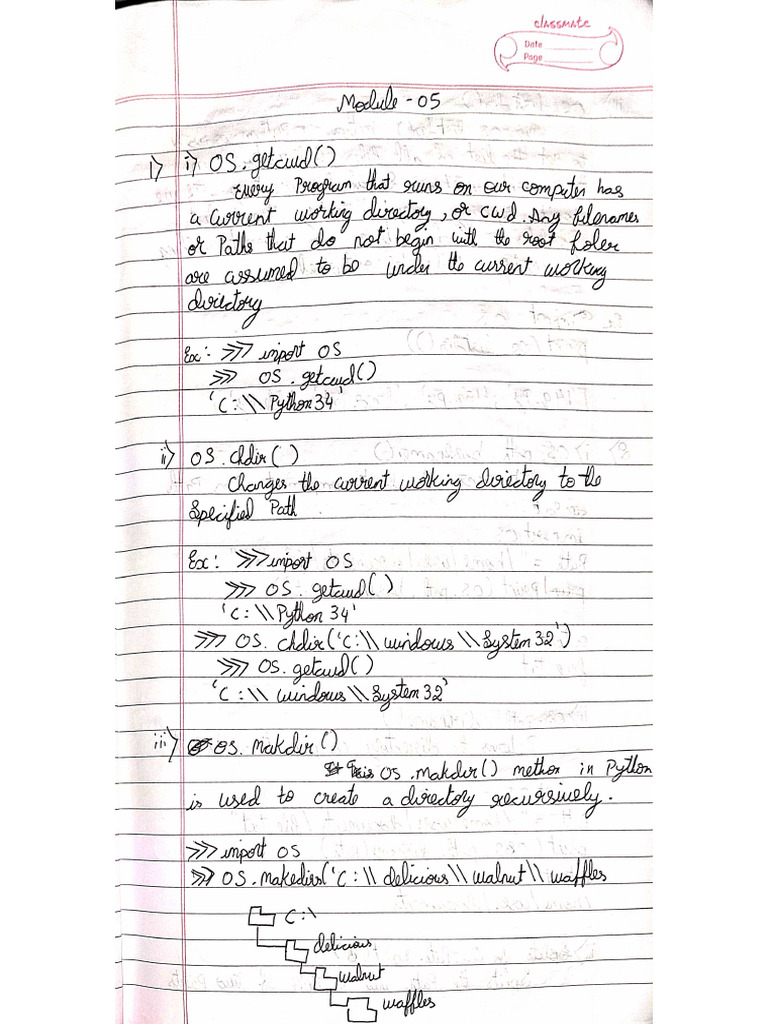 classmate
Date
Page
Module - 05
1) i) OS.getcwd()
Every Program that runs on our computer has
a Current working directory, or cwd. Any filenames
or Paths that do not begin with the root foler
are assumed to be under the current working
directory
Ex: >>> import OS
>>> OS.getcwd()
'C:\\Python34'
ii) OS.chdir( )
Changes the current working directory to the
Specified Path.
Ex: >>> import OS
>>> OS.getcwd()
'C:\\Python 34'
>>> OS.chdir('C:\\windows\\System32')
>>> OS.getcwd()
'C:\\windows\\System32'
iii) OS.makdir()
This OS.makdir() methon in Python
is used to create a directory recursively.
>>> import OS
>>> OS.makedirs('C:\\delicious\\walnut\\waffles
C:\
delicious
walnut
waffles